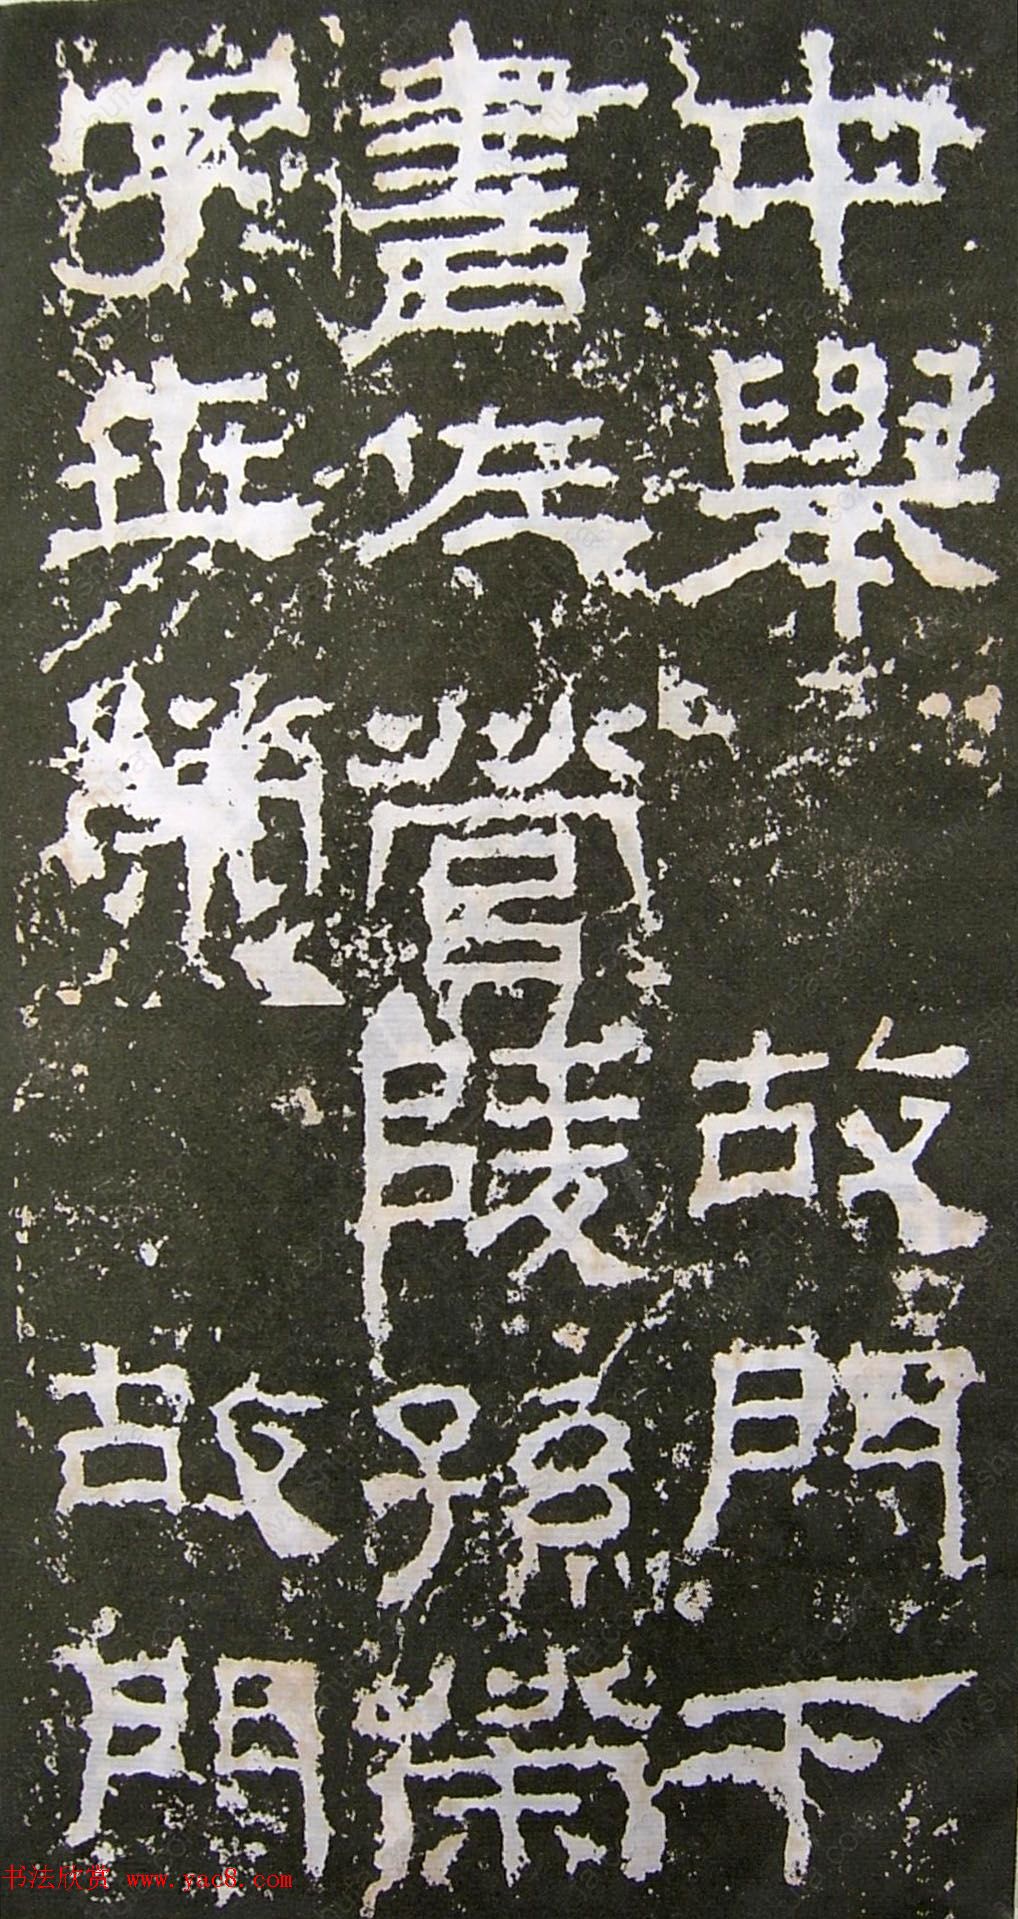 中舉 故門下
書佐營陵孫榮
字 故門
書法欣赏 www.yac8.com